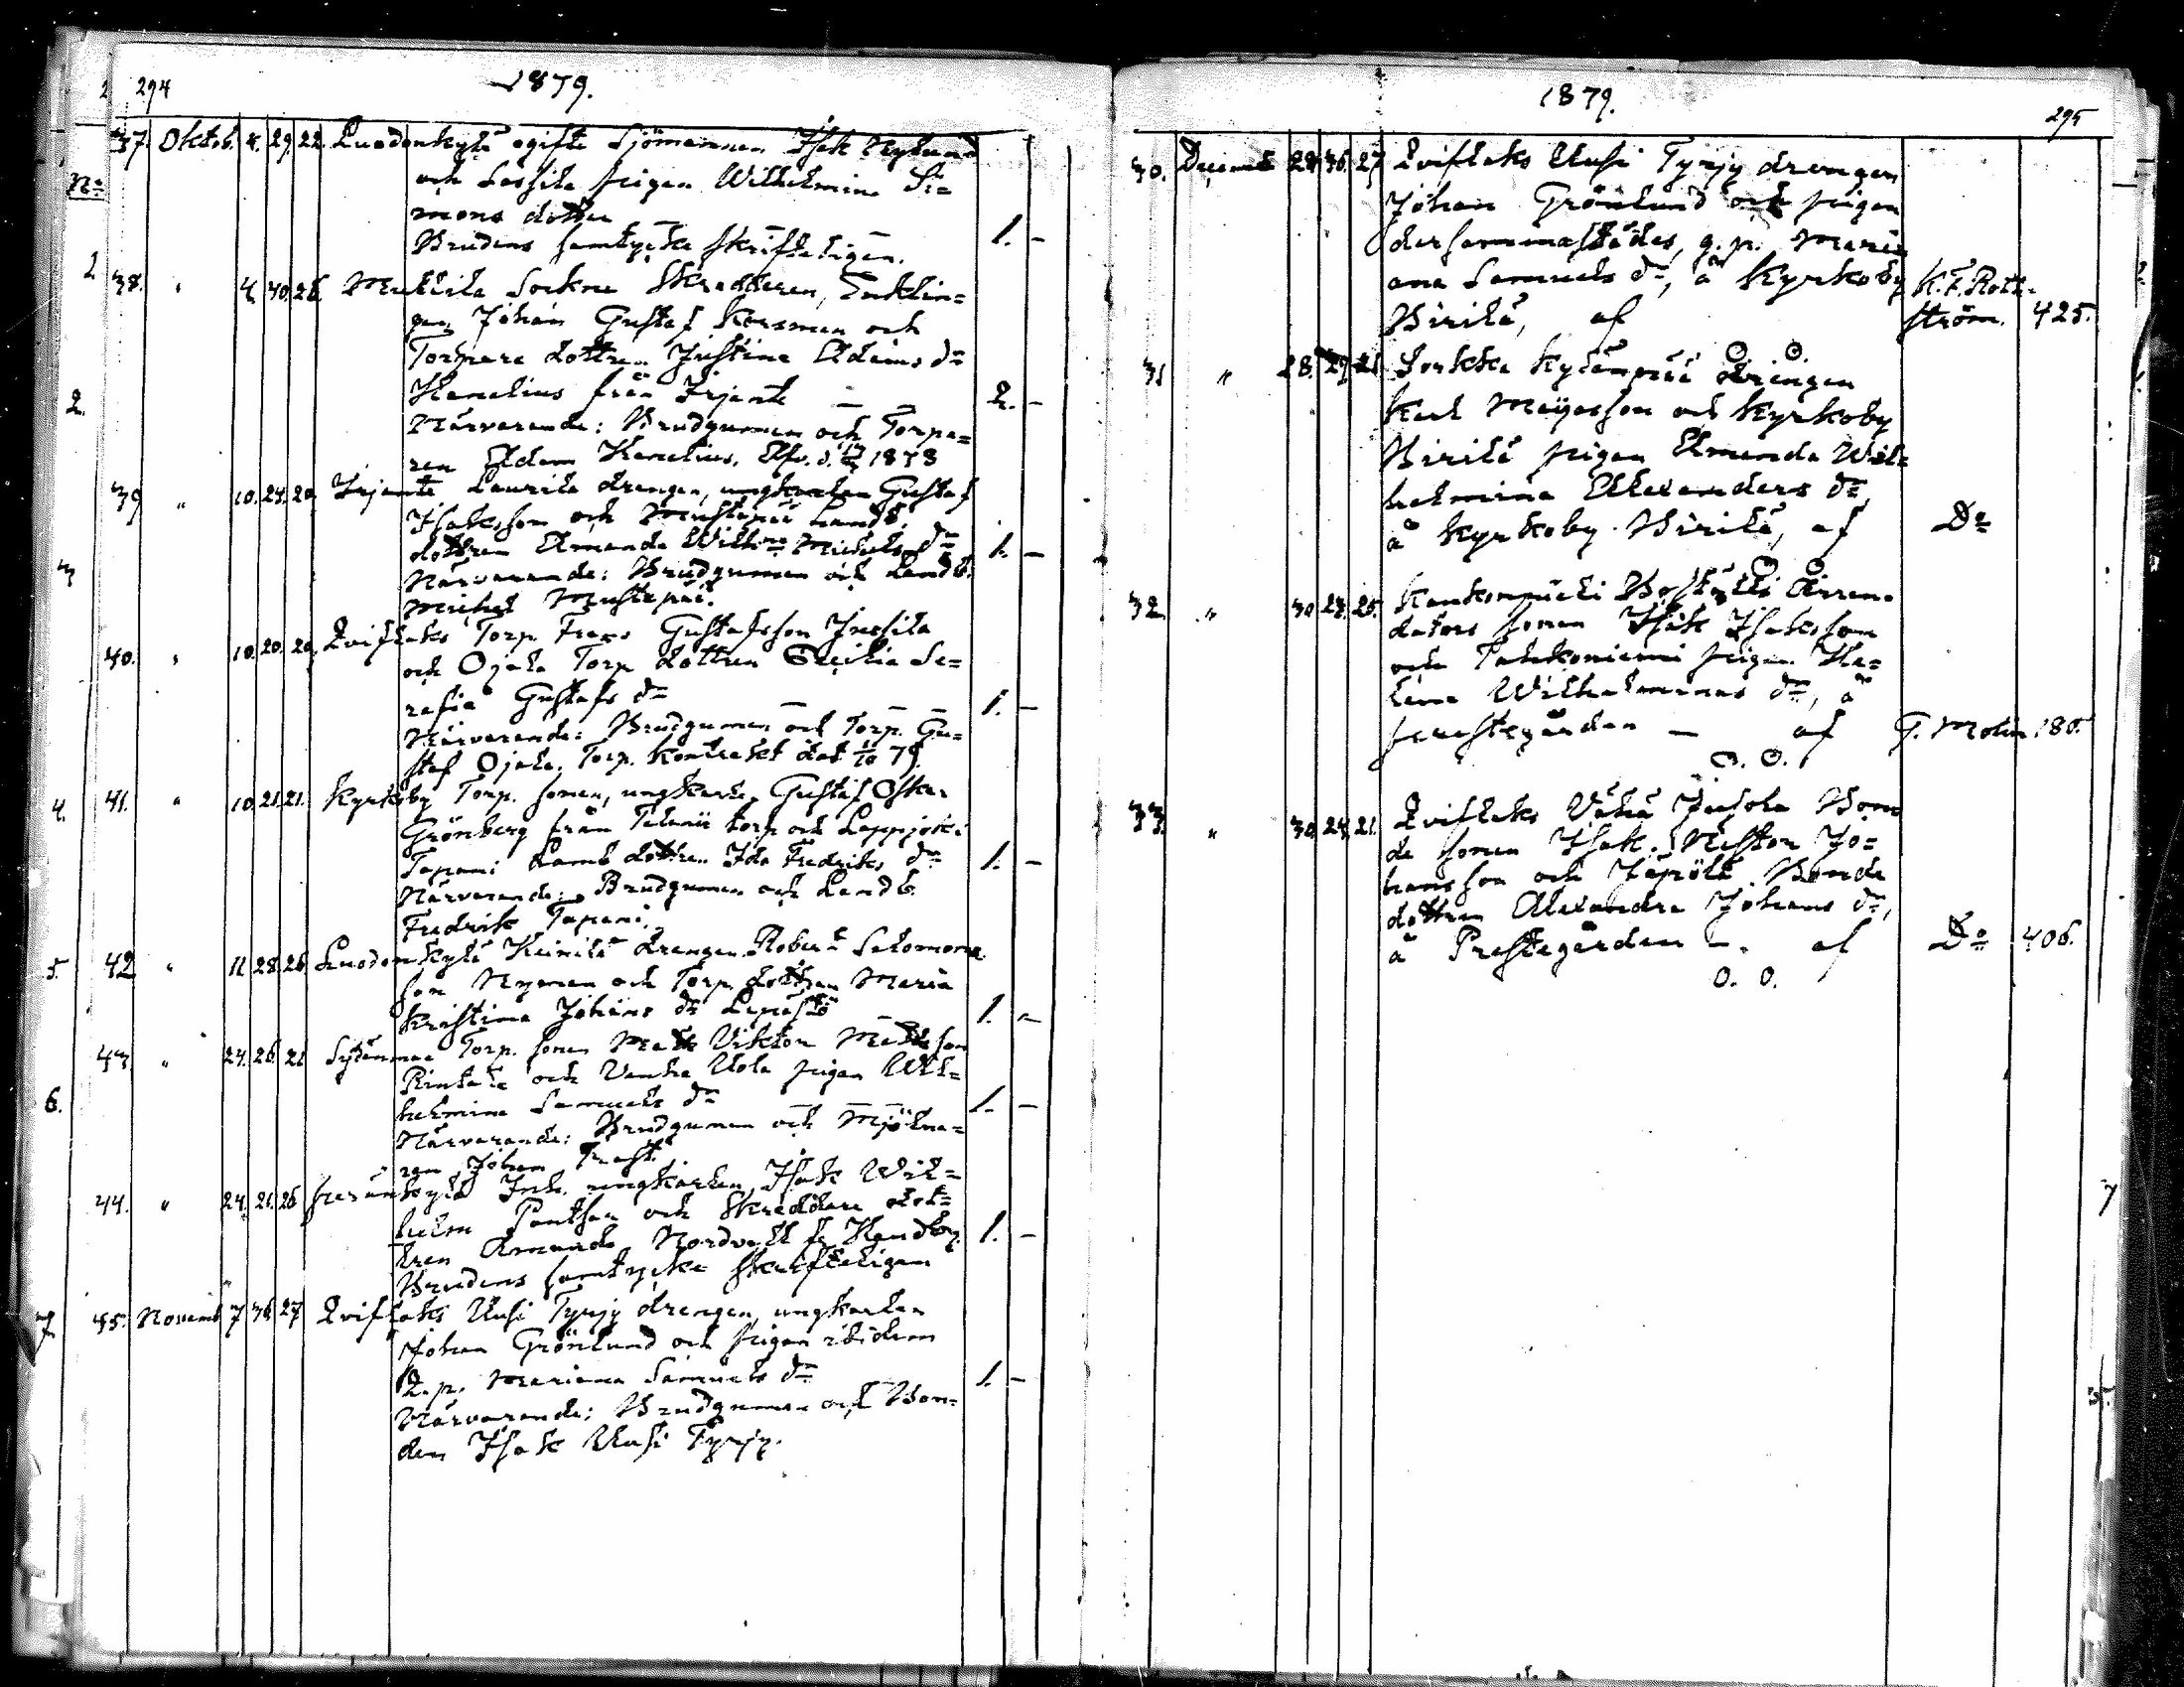 294
1879.
37. Oktob. 4. 29. 22. Luodonkylä ogifte Sjömannen Isak Nylund
och Lassila pigan Wilhelmina Si=
mons dotter
Brudens samtycke skrifteligen. 1. –
38. " 4. 40. 26. Socken Skräddaren, Enklin=
gen Johan Gustaf Korsman och
Torpare dottren Justina Adams dr
Kanelius från Irjante — — 2. –
Närvarande: Brudgumen och Torpa=
ren Adam Kanelius. 1878
39 " 10. 24. 20. Irjante Laurila drengen, ungkarlen Gustaf
Isaksson och Mustapää Landb.
dottren Amanda Wilh:na Michels dr 1. –
Närvarande: Brudgumen och Landb.
Michel Mustapää.
40. " 10. 20. 20. Qviflaks Torp. Frans Gustafsson Jussila
och Ojala Torp dottren Cecilia Se=
rafia Gustafs dr — — — 1. –
Närvarande: Brudgumen och Torp. Gu=
staf Ojala. Torp. Kontraktet dat 79.
41. " 10. 21. 21. Kyrkoby Torp. sonen, ungkarlen Gustaf Oskar
Grönberg från torp och Lappjoki
Tapani Landb dottren Ida Fredriks dr 1. –
Närvarande: Brudgumen och Landb.
Fredrik Tapani.
42 " 11 28. 26. Luodonkylä Heinilä drengen Robert Salomons
son Nyman och Torp dottren Maria
Kristina Johans dr Lepistö 1. –
43. " 24. 26. 21 Sydänmaa Torp. sonen Matts Viktor Mattsson
Rintala och Vanha Uola pigan Wil=
helmina Samuels dr — — 1. –
Närvarande: Brudgumen och Mjölna=
ren Johan
44. " 24. 21. 26 Inh. ungkarlen, Isak Wil=
helm och Skräddare dot=
tren Amanda Nordvall 1. –
Brudens samtycke skrifteligen
45. Novemb 7 36 27 Qviflaks Uusi Tyrjy drengen, ungkarlen
Johan Grönlund och pigan ibidem
Q. p. Mariana Samuels dr 1. –
Närvarande: Brudgumen och Bon=
den Isak Uusi Tyrjy.
1879.
295
30. Decemb 28 36. 27 Qviflaks Uusi Tyrjy drengen
Johan Grönlund och pigan
dersammastädes, q. p. Mari
ana Samuels dr, å Kyrkoby
Birilä, af K. F. Roth=
ström. 425.
31 " 28. 29. 21. Sorkka Kylänpää drengen
Karl Majasson och Kyrkoby
Birilä pigan Amanda Wil=
helmina Alexanders dr,
å Kyrkoby Birilä, af Do
32. " 30 23. 25. Kaukompieli Boställs Arren=
dators sonen Isak Isaksson
och Pahkoniemi pigan He=
lena Wilhelminas dr, å
prestegården — af G. Molin 180.
O. O.
33. " 30. 24. 21. Qviflaks Vähä Juhola Bon
de sonen Isak Nestor Jo=
hansson och Jäpölä Bonde
dottren Alexandra Johans dr,
å Prestegården –. af Do 406.
O. O.
No
1
2.
3
4.
5.
6.
7.
7